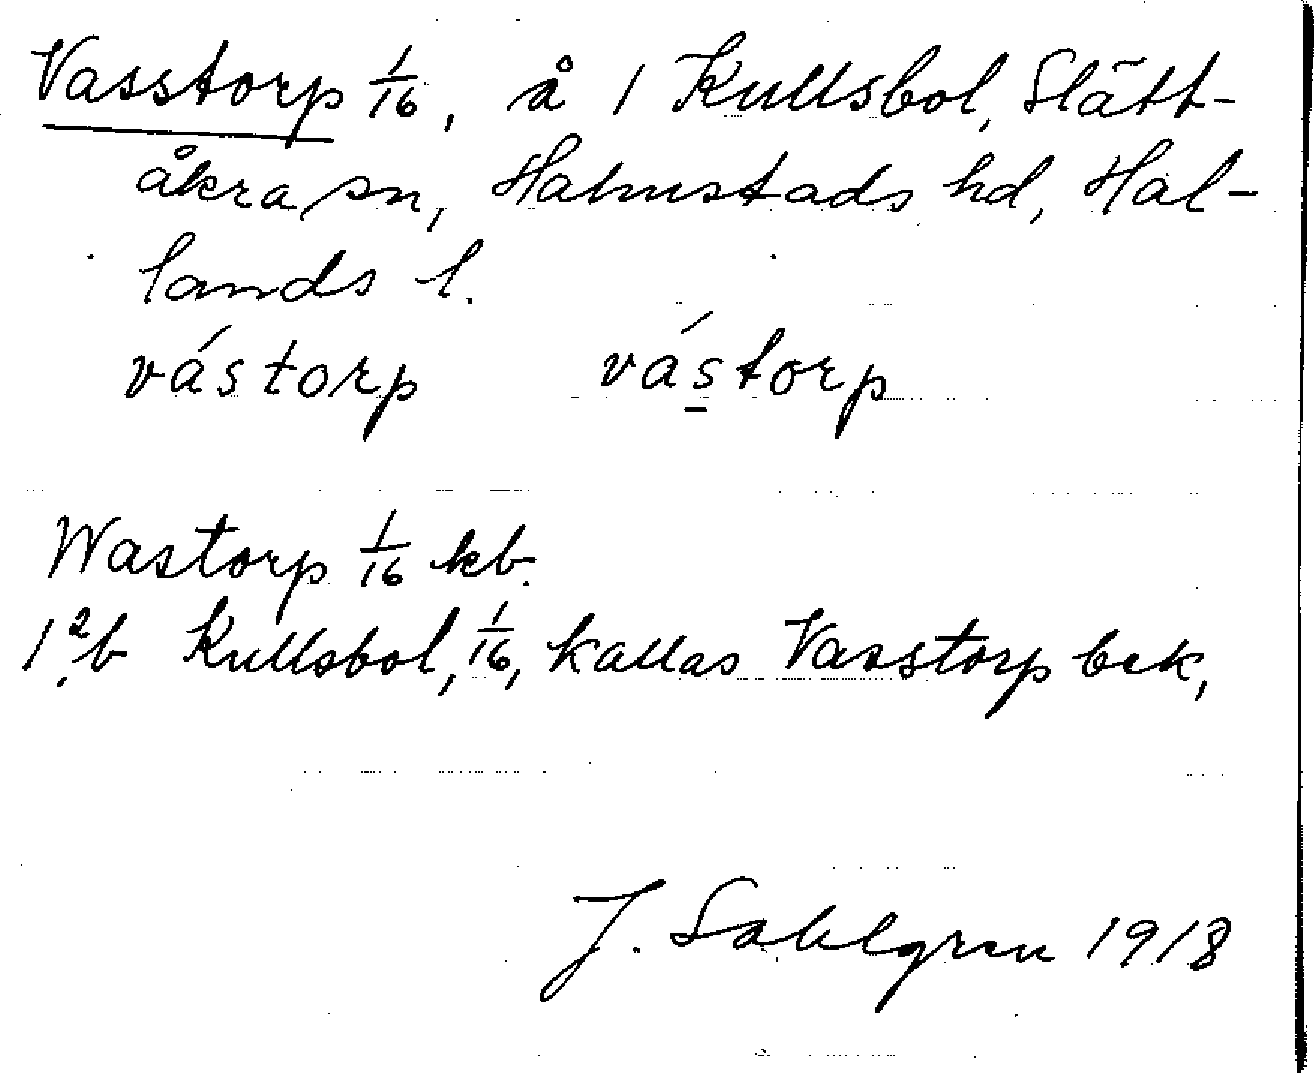 Vasstorp 1/16, å 1 Kullsbol, Slätt-
åkra sn, Halmstads hd, Hal-
lands l.
vástorp vástorp
Wastorp 1/16 kb.
1²b Kullsbol, 1/16, kallas Vasstorp bek,
J. Sahlgren 1918